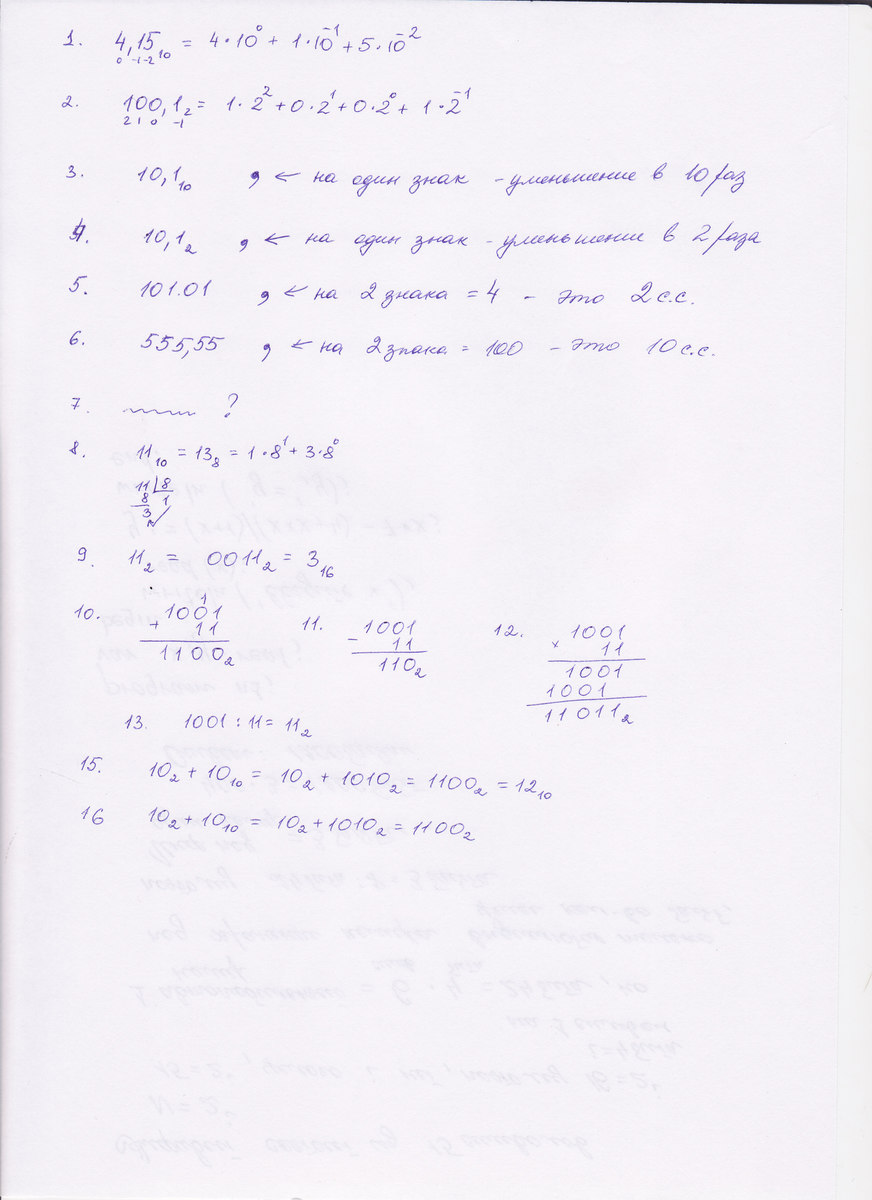 1. 4,15₁₀ = 4·10⁰ + 1·10⁻¹ + 5·10⁻²
0 -1 -2
2. 100,1₂ = 1·2² + 0·2¹ + 0·2⁰ + 1·2⁻¹
2 1 0 -1
3. 10,1₁₀ , ← на один знак - уменьшение в 10 раз
4. 10,1₂ , ← на один знак - уменьшение в 2 раза
5. 101.01 , ← на 2 знака = 4 - это 2 с.с.
6. 555,55 , ← на 2 знака = 100 - это 10 с.с.
7. ?
8. 11₁₀ = 13₈ = 1·8¹ + 3·8⁰
11 8
8 1
3
9. 11₂ = 0011₂ = 3₁₆
10. 1
1001
+ 11
1100₂
11. 1001
- 11
110₂
12. 1001
× 11
1001
1001
11011₂
13. 1001 : 11 = 11₂
15. 10₂ + 10₁₀ = 10₂ + 1010₂ = 1100₂ = 12₁₀
16 10₂ + 10₁₀ = 10₂ + 1010₂ = 1100₂